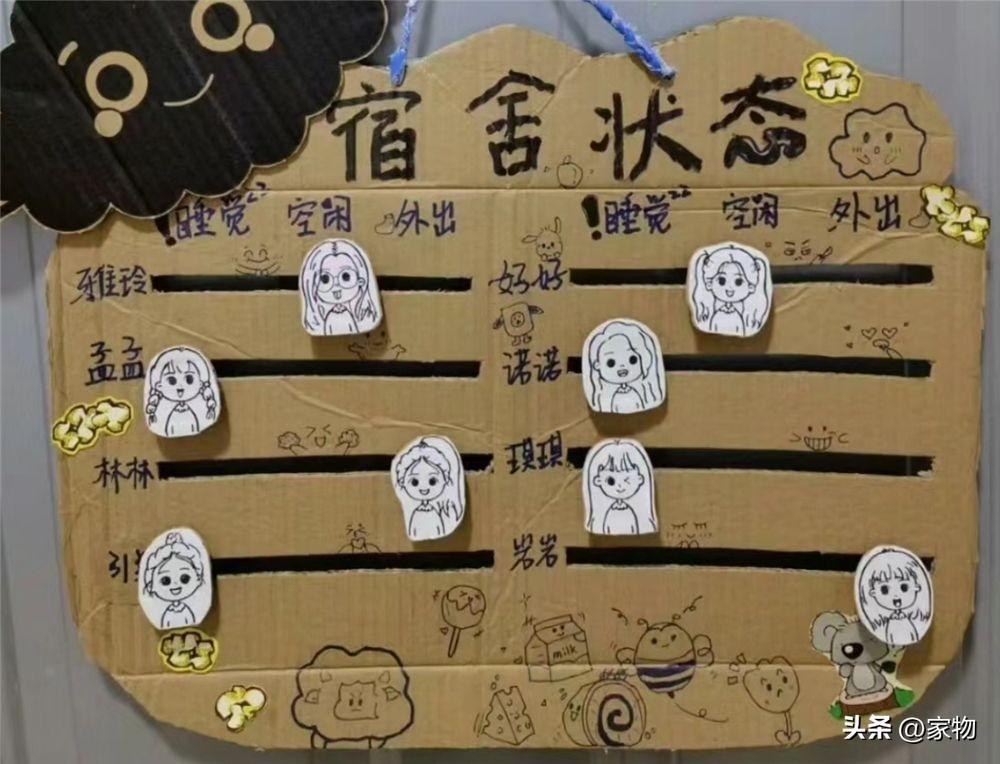 宿舍状态
!睡觉zz 空闲 外出
!睡觉zz 空闲 外出
雅玲
好好
孟孟
诺诺
林林
琪琪
引
岩岩
milk
头条 @家物